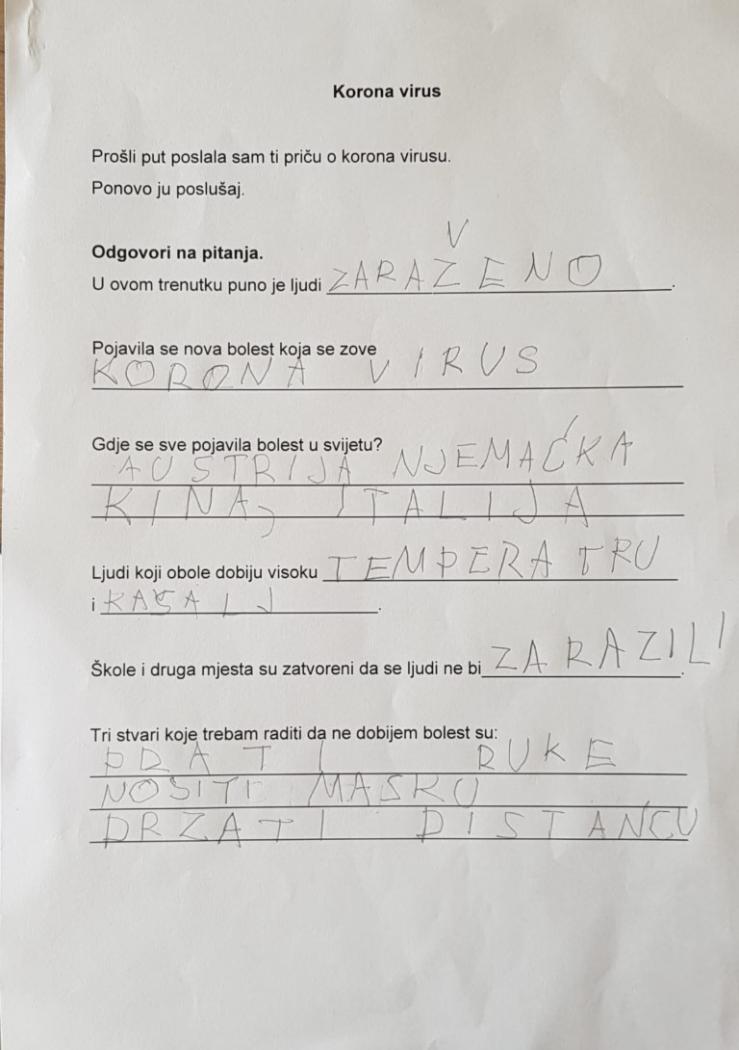 Korona virus
Prošli put poslala sam ti priču o korona virusu.
Ponovo ju poslušaj.
Odgovori na pitanja.
U ovom trenutku puno je ljudi ZARAŽENO.
Pojavila se nova bolest koja se zove
KORONA VIRUS
Gdje se sve pojavila bolest u svijetu?
AUSTRIJA NJEMAĆKA
KINA, ITALIJA
Ljudi koji obole dobiju visoku TEMPERATRU
i KAŠALJ.
Škole i druga mjesta su zatvoreni da se ljudi ne bi ZARAZILI.
Tri stvari koje trebam raditi da ne dobijem bolest su:
PRATI RUKE
NOSITI MASKU
DRZATI DISTANCU